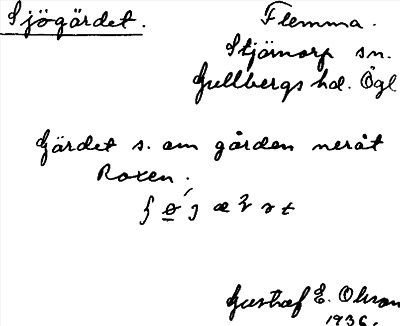 Sjögärdet.
Flemma.
Stjärnorp sn.
Gullbergs hd. Ögl
Gärdet s. om gården neråt
Roxen.
Gustaf E. Olson
1936.